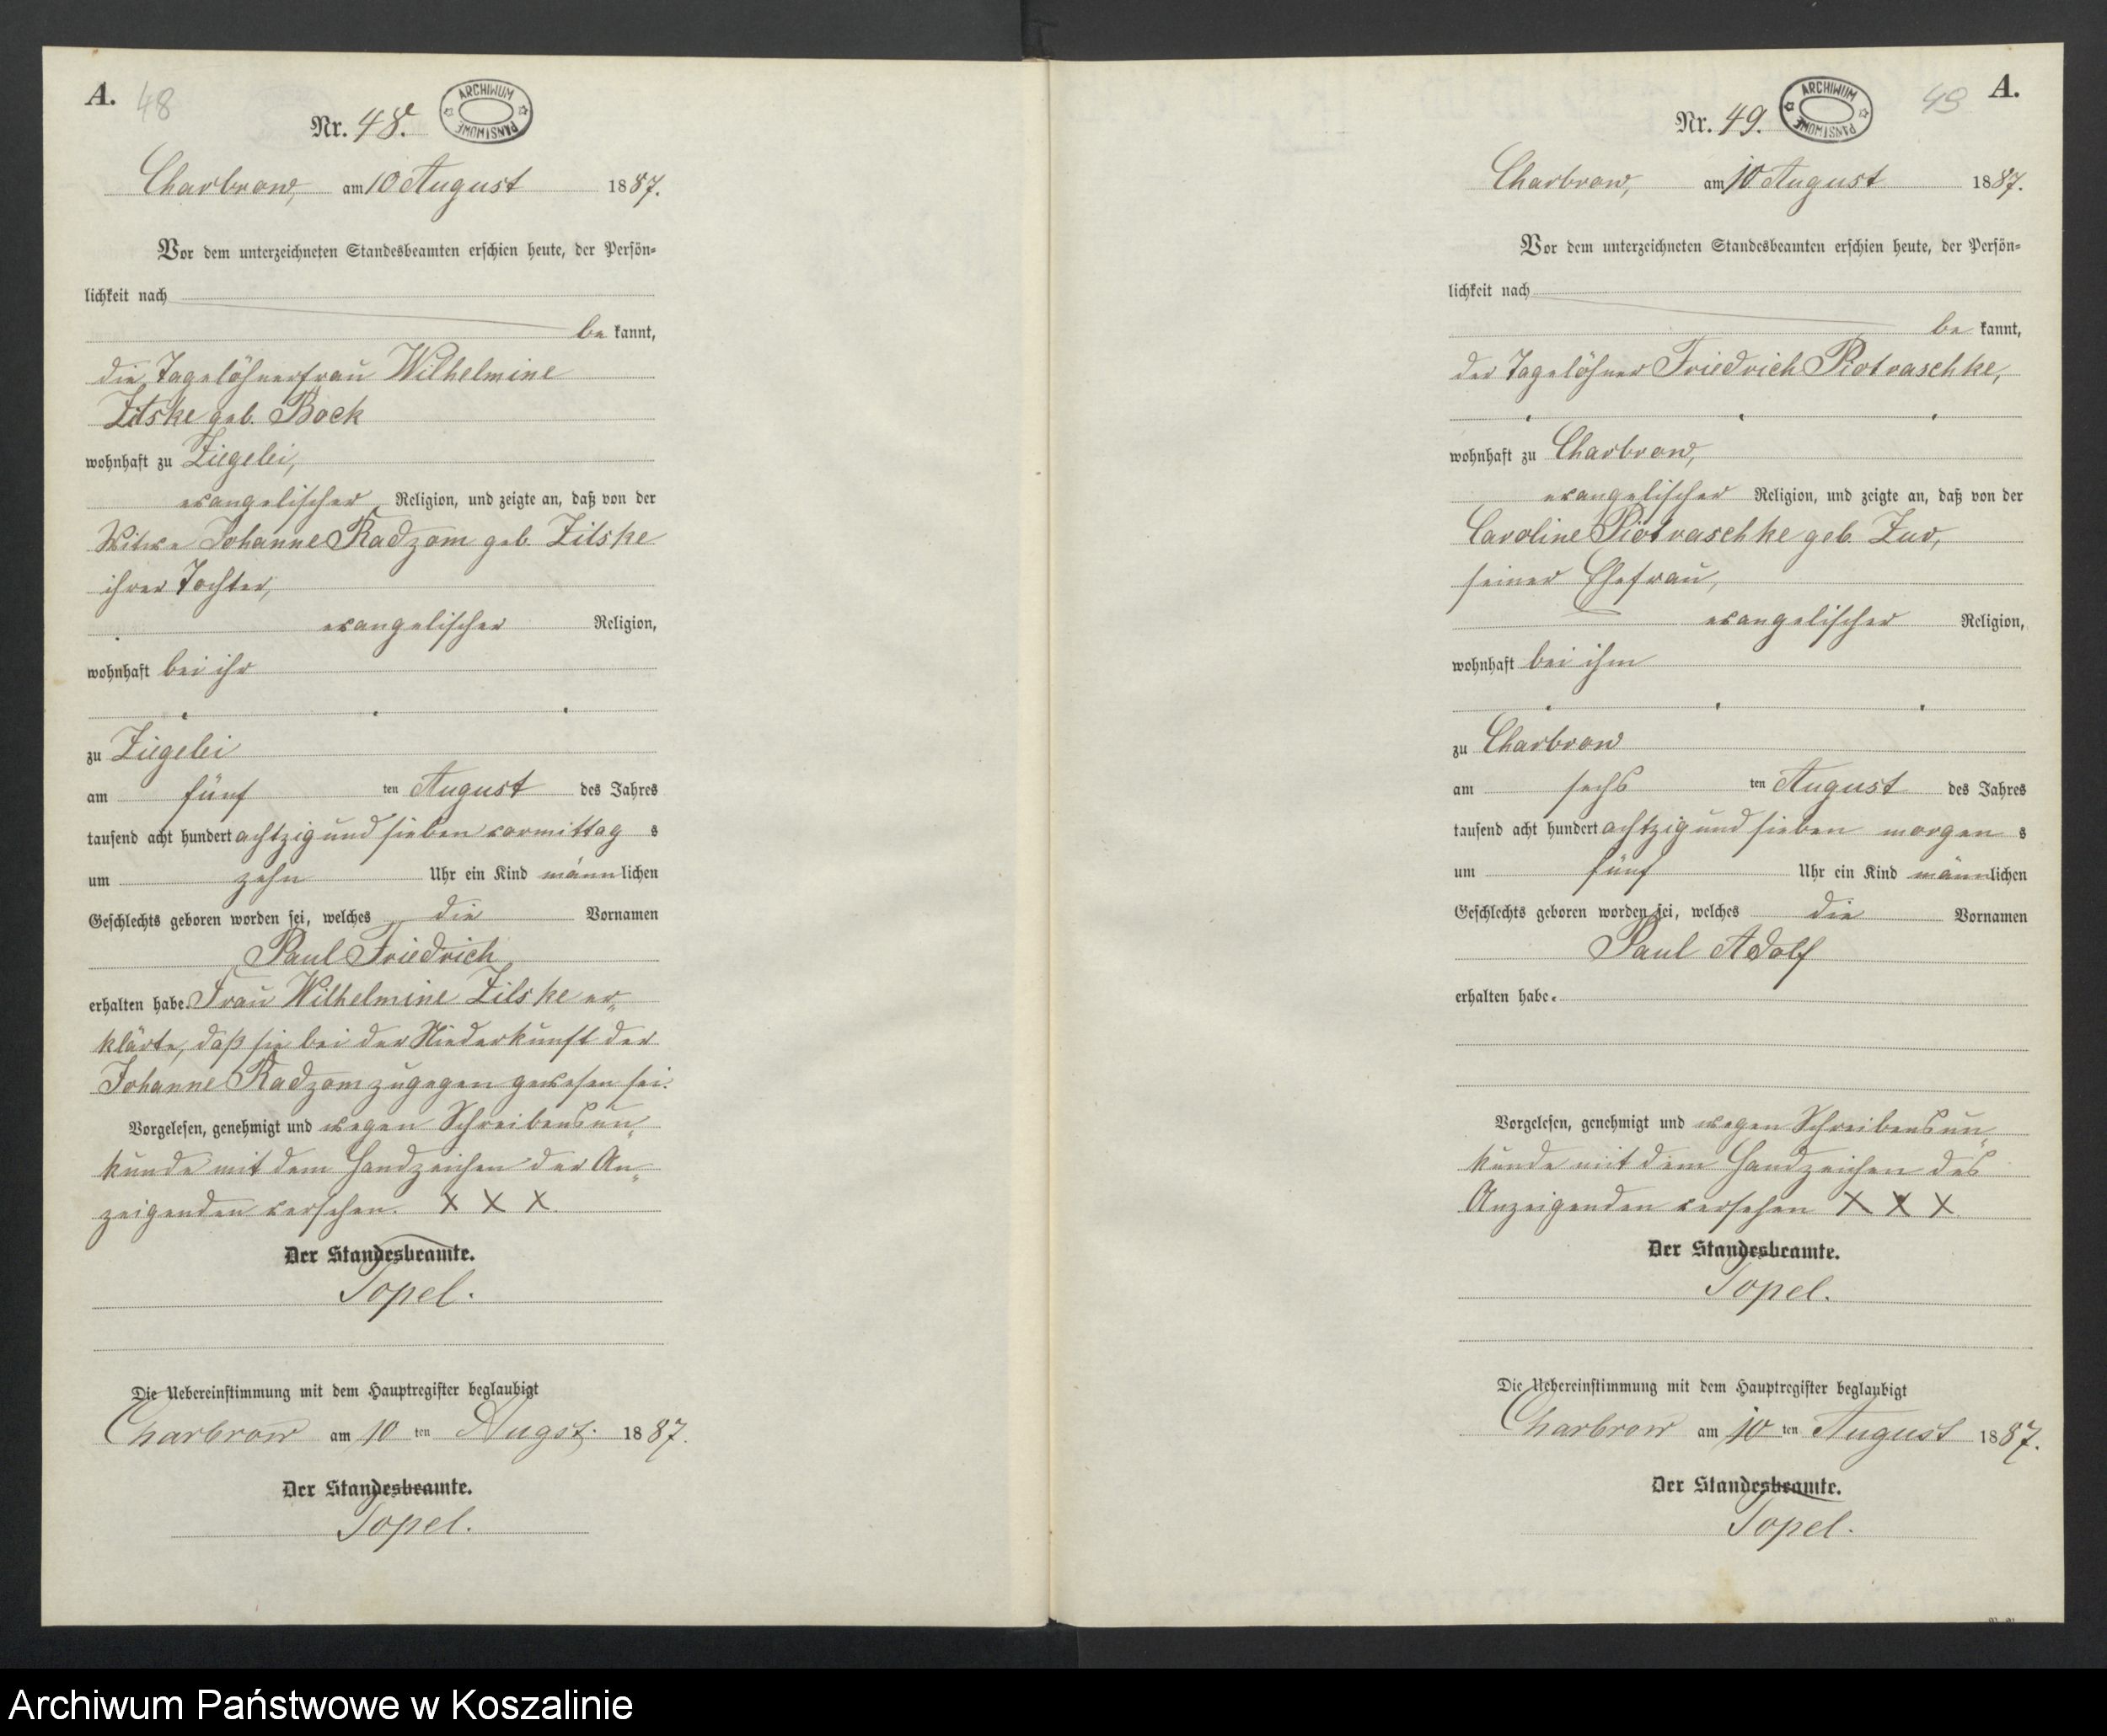 A. 48
Nr. 48.
ARCHIWUM PAŃSTWOWE
Charbrow, am 10 August 1887.
Vor dem unterzeichneten Standesbeamten erschien heute, der Persön-
lichkeit nach
be kannt,
die Tagelöhnerfrau Wilhelmine
Zilske geb. Bock
wohnhaft zu Ziegelei,
evangelischer Religion, und zeigte an, daß von der
Witwe Johanne Radzom geb. Zilske
ihrer Tochter,
evangelischer Religion,
wohnhaft bei ihr
zu Ziegelei
am fünf ten August des Jahres
tausend acht hundert achtzig und sieben vormittag s
um zehn Uhr ein Kind männlichen
Geschlechts geboren worden sei, welches die Vornamen
Paul Friedrich
erhalten habe. Frau Wilhelmine Zilske er-
klärte, daß sie bei der Niederkunft der
Johanne Radzom zugegen gewesen sei.
Vorgelesen, genehmigt und wegen Schreibensun-
kunde mit dem Handzeichen der An-
zeigenden versehen. X X X
Der Standesbeamte.
Topel.
Die Uebereinstimmung mit dem Hauptregister beglaubigt
Charbrow am 10 ten Augst. 1887.
Der Standesbeamte.
Topel.
49 A.
Nr. 49.
ARCHIWUM PAŃSTWOWE
Charbrow, am 10 August 1887.
Vor dem unterzeichneten Standesbeamten erschien heute, der Persön-
lichkeit nach
be kannt,
der Tagelöhner Friedrich Piotraschke,
wohnhaft zu Charbrow,
evangelischer Religion, und zeigte an, daß von der
Caroline Piotraschke geb. Zur,
seiner Ehefrau,
evangelischer Religion,
wohnhaft bei ihm
zu Charbrow
am sechs ten August des Jahres
tausend acht hundert achtzig und sieben morgen s
um fünf Uhr ein Kind männlichen
Geschlechts geboren worden sei, welches die Vornamen
Paul Adolf
erhalten habe.
Vorgelesen, genehmigt und wegen Schreibensun-
kunde mit dem Handzeichen des
Anzeigenden versehen X X X
Der Standesbeamte.
Topel.
Die Uebereinstimmung mit dem Hauptregister beglaubigt
Charbrow am 10 ten August 1887.
Der Standesbeamte.
Topel.
Archiwum Państwowe w Koszalinie